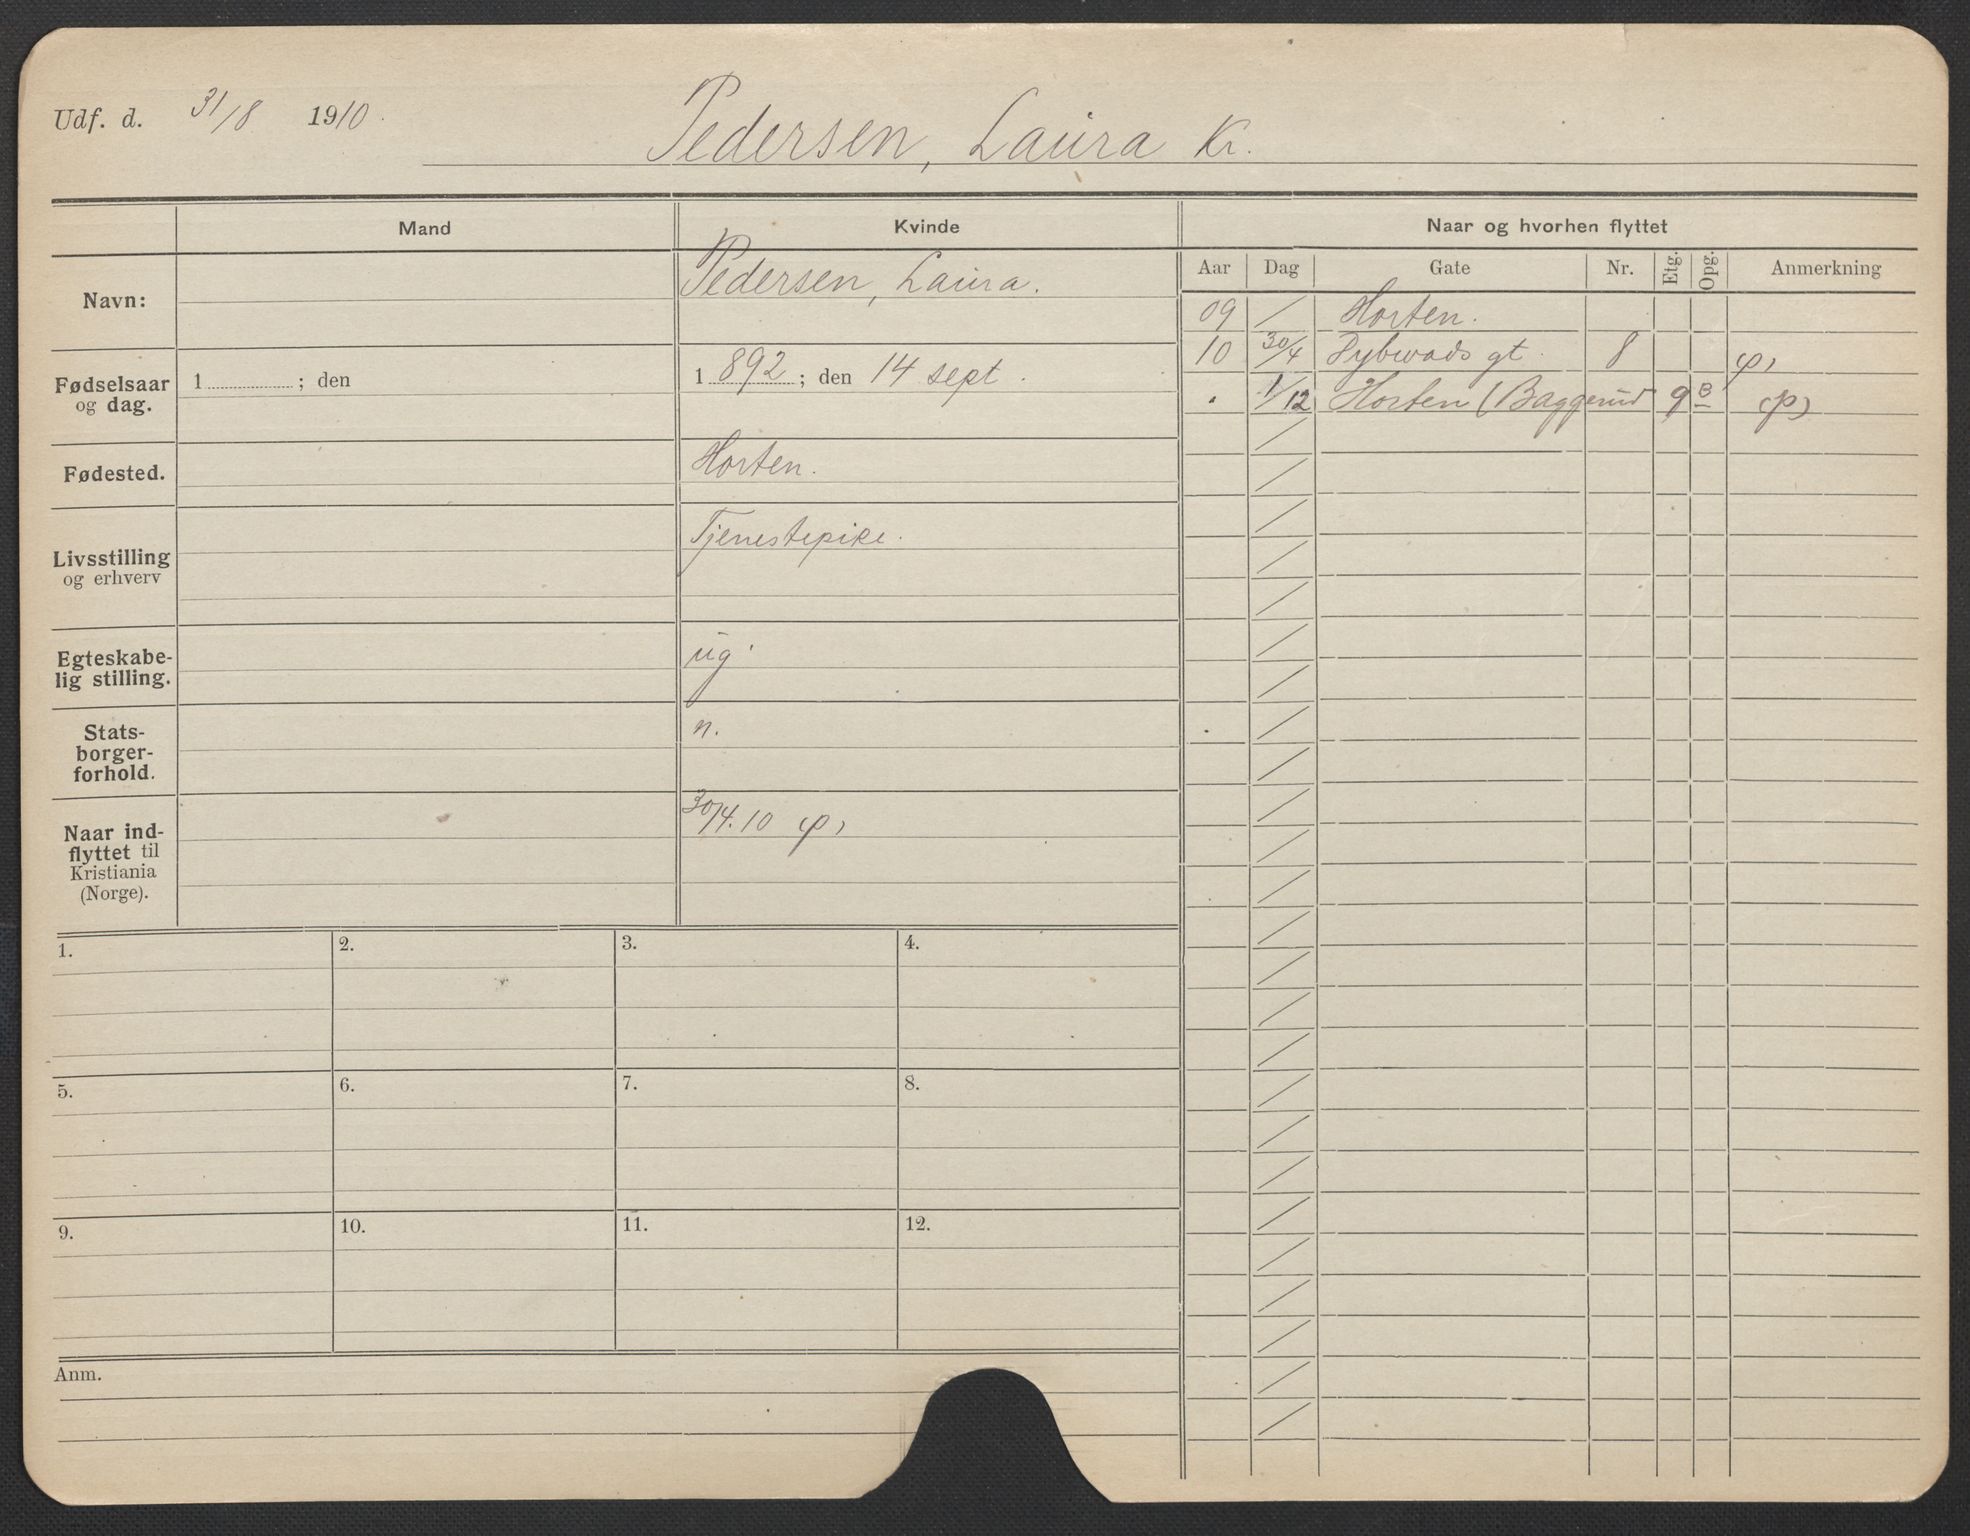 Udf. d. 31/8 1910.
Pedersen, Laura Kr.
Mand
Kvinde
Naar og hvorhen flyttet
Aar Dag Gate Nr. Etg. Opg. Anmerkning
Navn:
Pedersen, Laura.
Fødselsaar
og dag.
1 ; den
1 892 ; den 14 sept.
Fødested.
Horten.
Livsstilling
og erhverv
Tjenestepike.
Egteskabe-
lig stilling.
ug.
Stats-
borger-
forhold.
n.
Naar ind-
flyttet til
Kristiania
(Norge).
30/4.10
09 / Horten.
10 30/4 Dybwads gt. 8
1/12 Horten (Baggerud 9 B
1.
2.
3.
4.
5.
6.
7.
8.
9.
10.
11.
12.
Anm.